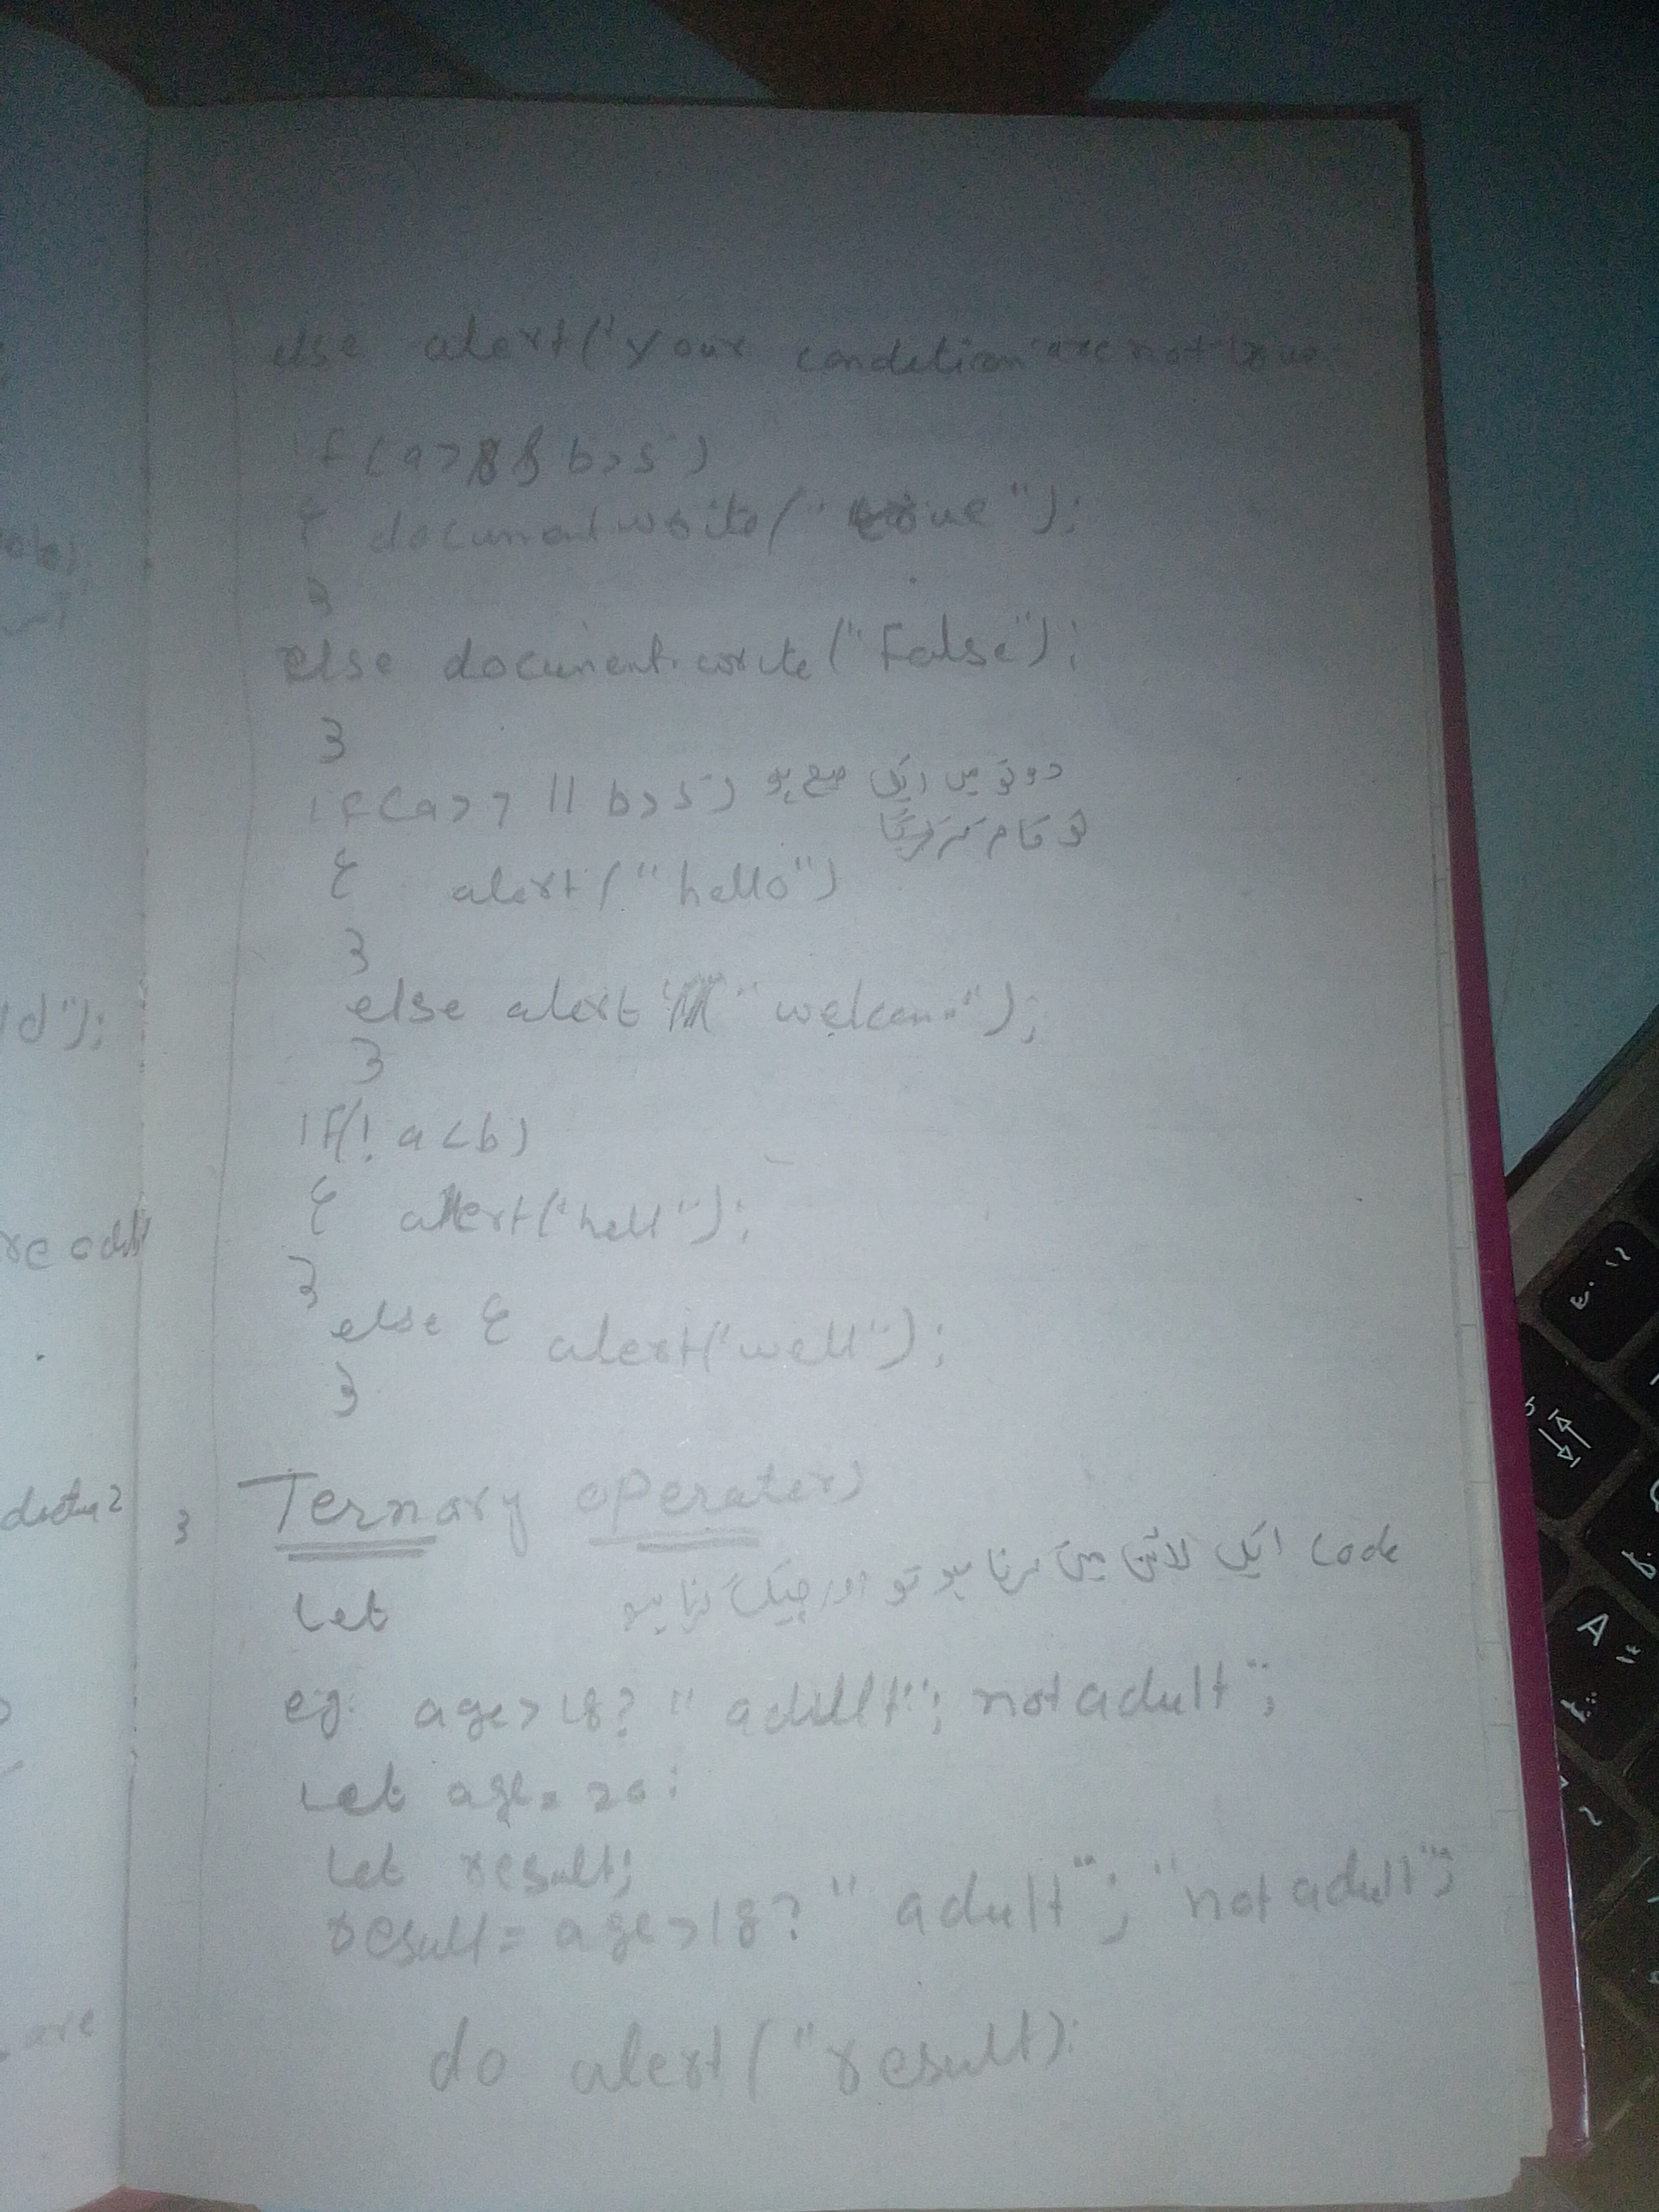 else alert("your condition are not true
if(a>8& b>5)
{ document write("true");
}
else document.write("False");
}
if(a>7 || b>5) دونو میں ایک صحیح ہو
تو کام کریگا
{ alert("hello")
}
else alert("welcome");
}
if(! a<b)
{ alert("hell");
}
else { alert("well");
}
Ternary operater)
Let ایک لائن میں کرنا ہو تو اور چیک کرنا ہو code
eg: age>18? "adult"; not adult";
Let age = 20;
Let result;
result = age>18? "adult"; "not adult";
do alert("result);
d");